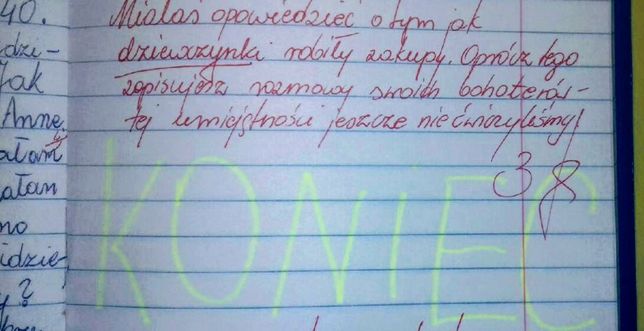 40. Miałaś opowiedzieć o tym jak
dzi- dziewczynki robiły zakupy. Oprócz tego
Jak zapisujesz rozmowy swoich bohaterów-
Annę tej umiejętności jeszcze nie ćwiczyliśmy!
ałam 3
ałan
no
idzie-
y?
KONIEC